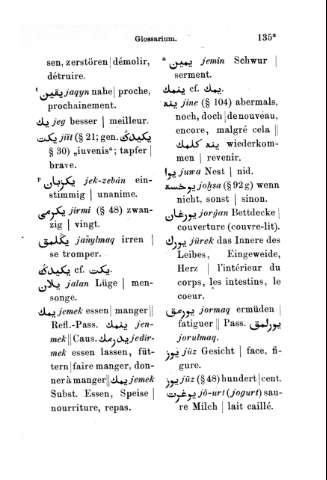 Glossarium. 135*
sen, zerstören | démolir,
détruire.
ᵃ يقين jaqyn nahe | proche,
prochainement.
يك jeg besser | meilleur.
يكت jiit (§ 21; gen. يكيدك
§ 30) „iuvenis“; tapfer |
brave.
ᵖ يكزبان jek-zebān ein-
stimmig | unanime.
يكرمى jirmi (§ 48) zwan-
zig | vingt.
يڭلمق jañylmaq irren |
se tromper.
يكيدك cf. يكت.
يلان jalan Lüge | men-
songe.
يمك jemek essen | manger ||
Refl.-Pass. ينمك jen-
mek || Caus. يدرمك jedir-
mek essen lassen, füt-
tern | faire manger, don-
ner à manger || يمك jemek
Subst. Essen, Speise |
nourriture, repas.
ᵃ يمين jemīn Schwur |
serment.
ينمك cf. يمك.
ينه jine (§ 104) abermals,
noch, doch | de nouveau,
encore, malgré cela ||
ينه كلمك wiederkom-
men | revenir.
يوا juwa Nest | nid.
يوخسه joḫsa (§ 92 g) wenn
nicht, sonst | sinon.
يورغان jorġan Bettdecke |
couverture (couvre-lit).
يورك jürek das Innere des
Leibes, Eingeweide,
Herz | l'intérieur du
corps, les intestins, le
coeur.
يورمق jormaq ermüden |
fatiguer || Pass. يورلمق
jorulmaq.
يوز jüz Gesicht | face, fi-
gure.
يوز jüz (§ 48) hundert | cent.
يوغرت jō-urt (jogurt) sau-
re Milch | lait caillé.